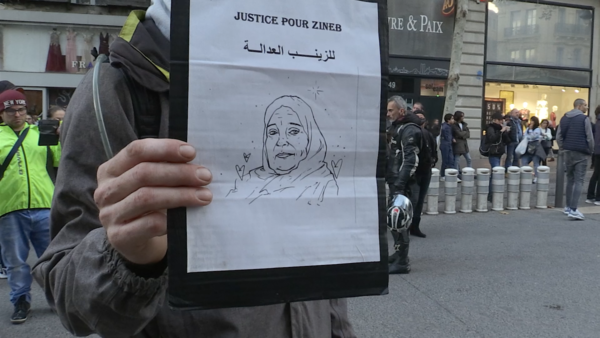 JUSTICE POUR ZINEB
للزينب العدالة
RE & PAIX
49